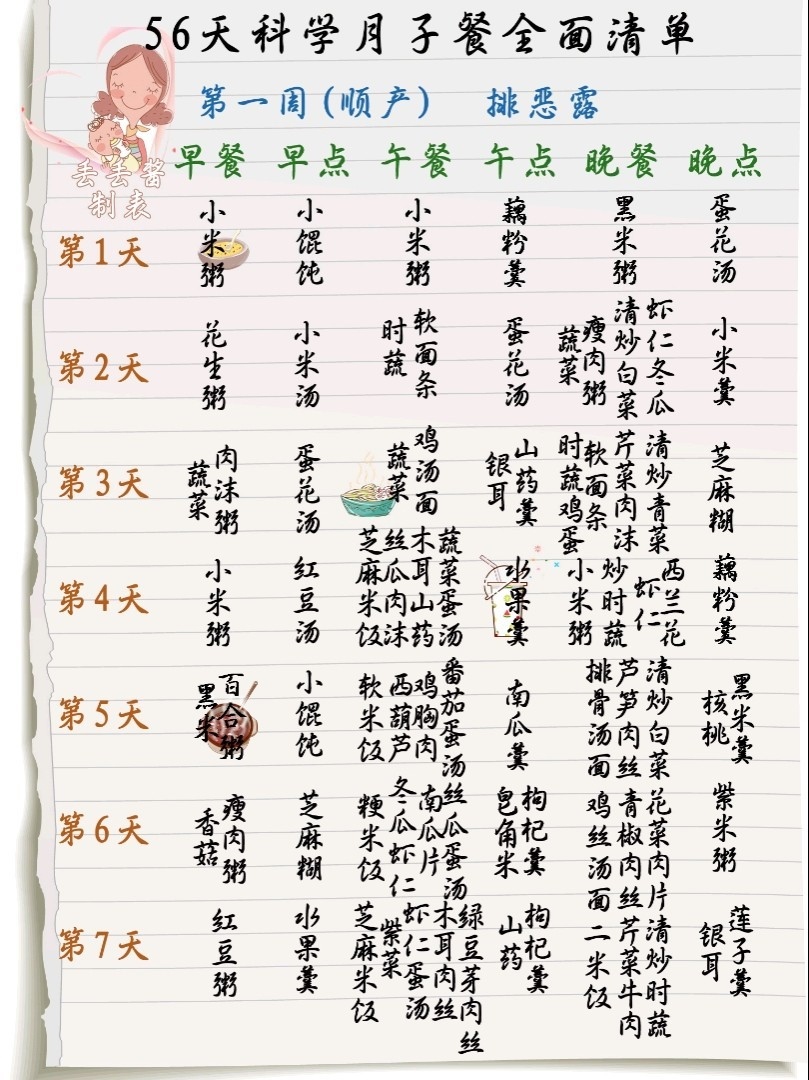 56天科学月子餐全面清单
第一周(顺产) 排恶露
丢丢酱
制表
早餐 早点 午餐 午点 晚餐 晚点
第1天
小米粥
小馄饨
小米粥
藕粉羹
黑米粥
蛋花汤
第2天
花生粥
小米汤
时蔬
软面条
蛋花汤
蔬菜
瘦肉粥
清炒白菜
虾仁冬瓜
小米羹
第3天
蔬菜
肉沫粥
蛋花汤
蔬菜
鸡汤面
银耳
山药羹
时蔬鸡蛋
软面条
芹菜肉沫
清炒青菜
芝麻糊
第4天
小米粥
红豆汤
芝麻米饭
丝瓜肉沫
木耳山药
蔬菜蛋汤
水果羹
小米粥
炒时蔬
虾仁
西兰花
藕粉羹
第5天
黑米
百合粥
小馄饨
软米饭
西葫芦
鸡胸肉
番茄蛋汤
南瓜羹
排骨汤面
芦笋肉丝
清炒白菜
核桃
黑米羹
第6天
香菇
瘦肉粥
芝麻糊
粳米饭
冬瓜虾仁
南瓜片
丝瓜蛋汤
皂角米
枸杞羹
鸡丝汤面
青椒肉丝
花菜肉片
紫米粥
第7天
红豆粥
水果羹
芝麻米饭
紫菜
虾仁蛋汤
木耳肉丝
绿豆芽肉丝
山药
枸杞羹
二米饭
芹菜牛肉
清炒时蔬
银耳
莲子羹